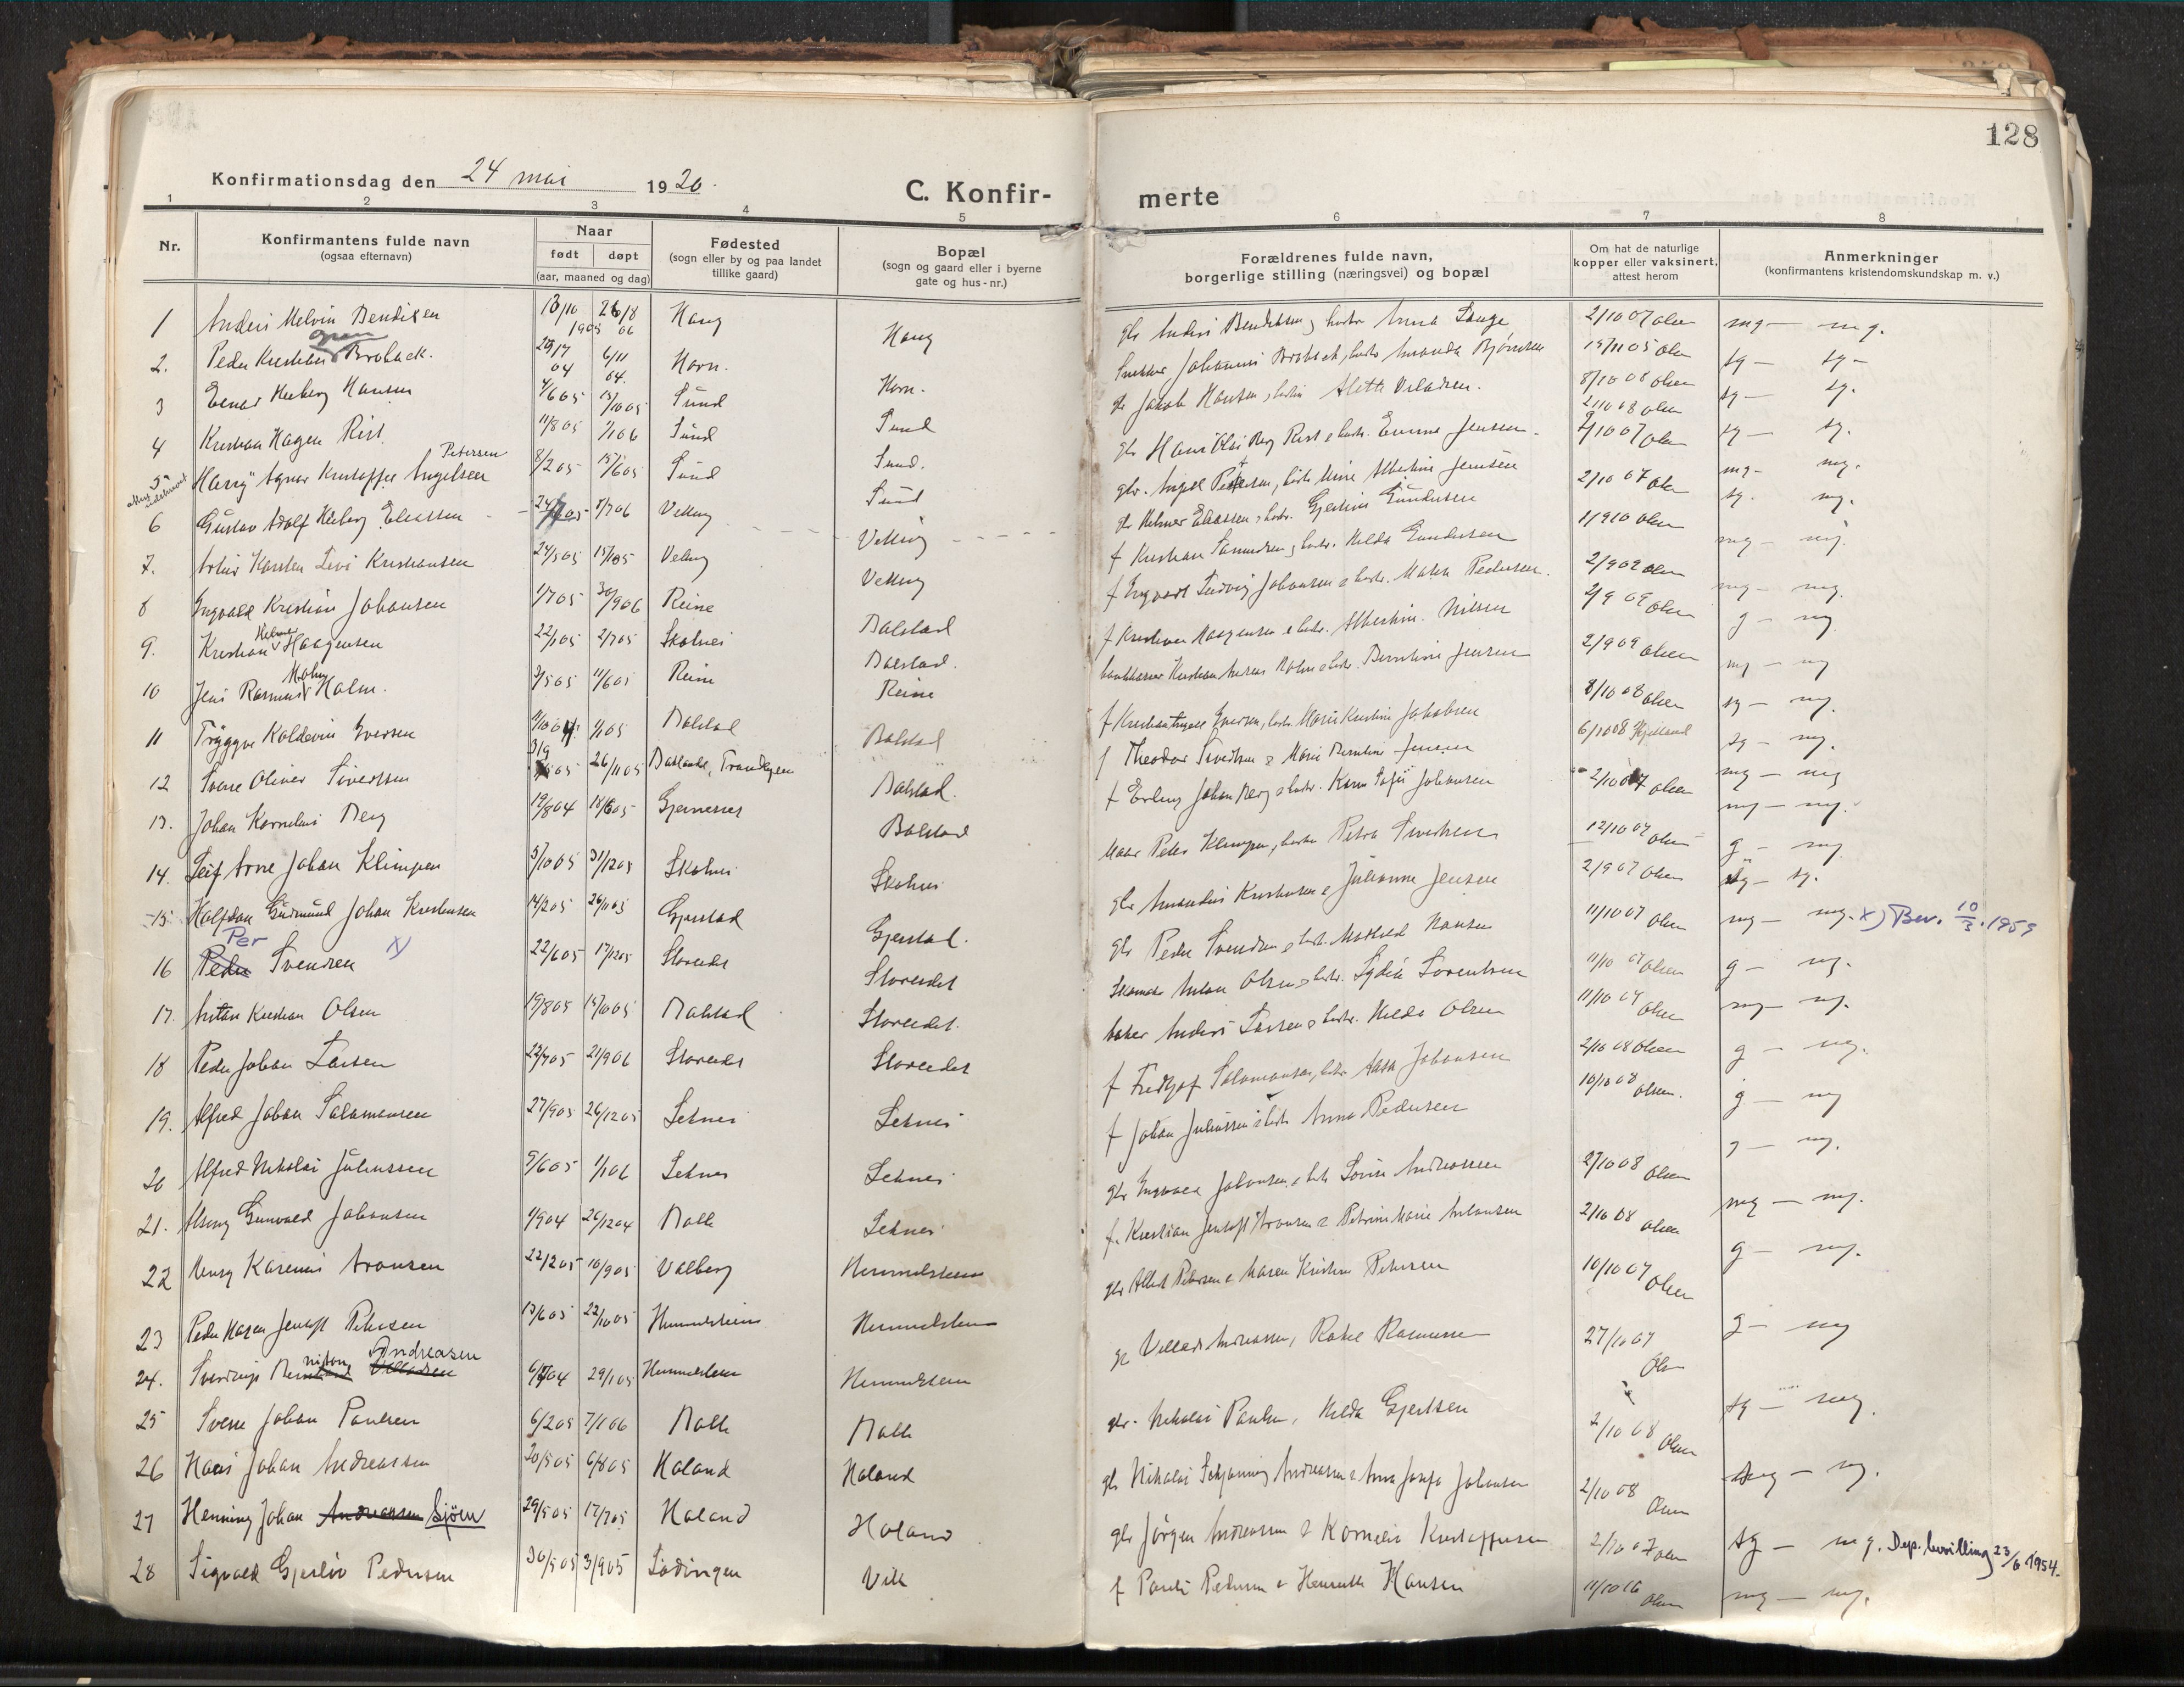 128
Konfirmationsdag den 24 mai 1920.
C. Konfir-
merte
1 2 3 4 5 6 7 8
Nr.
Konfirmantens fulde navn
(ogsaa efternavn)
Naar
født døpt
(aar, maaned og dag)
Fødested
(sogn eller by og paa landet
tillike gaard)
Bopæl
(sogn og gaard eller i byerne
gate og hus-nr.)
Forældrenes fulde navn,
borgerlige stilling (næringsvei) og bopæl
Om hat de naturlige
kopper eller vaksinert,
attest herom
Anmerkninger
(konfirmantens kristendomskundskap m. v.)
1 Anders Melvin Bendiksen 13/10 1905 26/8 06 Haug Haug gbr Anders Bendiksen, hustru Anna Lange 2/10 07 Olsen mg — mg.
2. Peder Kristian Broback. 04 6/11 04. Horn. Horn. Johannes Broback, hustr. Amanda Bjørnsen 15/11 05 Olsen sg — sg —
3 Einar Herberg Hansen 4/6 05 15/10 05 Sund Sund gbr Jakob Hansen, hustru Alette Veladsen. 8/10 08 Olsen sg — sg.
4 Kristian Hagen Rist 11/8 05 1/1 06 Sund Sund. gbr Hans Olai Berg Rist & hustr. Emma Jensen. 2/10 08 Olsen sg — sg.
Petersen
5 Harry Agnar Kristoffer Ingelsen 8/2 05 15/6 05 Sund Sund gbr. Ingel Petersen, hustr. Mine Albertine Jensen 2/10 07 Olsen mg — mg.
6 Gustav Adolf Herberg Eliassen 24/7 05 8/7 06 Vetting Vetting gbr Helmer Eliassen, hustr. Gjertine Gundersen 2/10 07 Olsen sg. mg.
7. Artur Karsten Levi Kristiansen 24/5 05 Vetting Vetting f Kristian Samuelsen, hustr. Hilda Gundersen 1/9 10 Olsen mg — mg.
8 Ingvald Kristian Johansen 1/7 05 30/9 06 Reine Balstad f Ingvart Ludvig Johansen & hustr. Maren Pedersen. 2/9 09 Olsen mg — mg.
Helmer
9. Kristian Haagensen 22/1 05 2/7 05 Skotnes Balstad. f Kristian Haagensen & hustr. Albertine Nilsen 2/9 09 Olsen g — mg
10 Jens Rasmus Holm. 3/5 05 11/6 05 Reine Reine Kristian Holm & hustr. Berntine Jensen 2/9 09 Olsen mg — mg
11 Tryggve Koldevin Iversen 1/1 05 Balstad Balstad f Iversen, hustr. Marie Kristine Jakobsen 8/10 08 Olsen sg — mg.
12 Sverre Oliver Sivertsen 26/11 05 Balstad Balstad. f Theodor Sivertsen & Marie Berntine Jensen 6/10 08 Kjelland sg — mg.
13. Johan Kornelius Berg 19/8 04 18/6 05 Gjernesset Balstad f Erling Johan Berg & hustr. Karen Sofie Johansen 2/10 07 Olsen mg — mg
14. Leif Arne Johan Klimpen 5/10 05 31/12 05 Skotnes Skotnes Peder Klimpen, hustru Petra Sivertsen 12/10 07 Olsen g — mg
15. Halfdan Gudmund Johan Kristensen 14/2 05 26/11 05 Gjerstad Gjerstad. gbr Amandus Kristensen & Julianne Jensen 2/9 07 Olsen sg — sg.
Per
16 Peder Svendsen x) 22/6 05 17/12 05 Storeidet Storeidet gbr Peder Svendsen & hustr. Mathild Hansen 11/10 07 Olsen mg — mg. x) Bev. 10/3.1959
17. Anton Kristian Olsen 19/8 05 15/10 05 Balstad Storeidet. skomak Anton Olsen & hustr. Lydia Lorentsen 11/10 07 Olsen g — mg.
18 Peder Johan Larsen 22/7 05 21/9 06 Storeidet Storeidet baker Anders Larsen & hustr. Hilda Olsen 11/10 07 Olsen mg — mg.
19. Alfred Johan Salamonsen 27/9 05 26/12 05 Leknes Leknes f Fredtjof Salamonsen, hustr. Aasa Johansen 2/10 08 Olsen g — mg.
20 Alfred Nikolai Juliussen 9/6 05 1/1 06 Leknes Leknes f Johan Juliussen & hustr Anna Pedersen 10/10 08 Olsen. g — mg
21. Gunvald Johansen 1/9 04 26/12 04 Balle Leknes gbr Ingvald Johansen & hustr Lovise Andreassen 27/10 08 Olsen mg — mg.
22 Henry Karenius Aronsen 22/2 05 10/9 05 Valberg Himmelstein f. Kristian Jentoft Aronsen & Petrine Marie Antonsen 2/10 08 Olsen g — mg.
23 Peder Hagen Jentoft Petersen 13/6 05 22/10 05 Himmelstein Himmelstein gbr Albert Petersen & Maren Kristine Petersen 10/10 07 Olsen g — mg
Andreasen
24. Sverdrup 29/1 05 Himmelstein Himmelstein Villads Andreassen, Rakel Rasmussen 27/10 07 Olsen sg — mg.
25 Sverre Johan Paulsen 6/2 05 7/1 06 Balle Balle gbr. Nikolai Paulsen, Hilda Gjertsen 2/10 08 Olsen
26 Hans Johan Andreassen 20/5 05 6/8 05 Haland Haland gbr Nikolai Andreassen & Anna Josefa Johansen 2/10 08 Olsen mg — mg.
27 Henning Johan Andreassen Sjöen 29/5 05 17/7 05 Haland Haland gbr Jörgen Andreassen & Kornelia Kristoffersen 2/10 07 Olsen sg — mg. Dep. bevilling 23/6 1954.
28 Sigvald Gjerlöv Pedersen 30/5 05 3/9 05 Lödingen Vik f Paul Pedersen & Henrette Hansen 11/10 16 Olsen mg — mg.